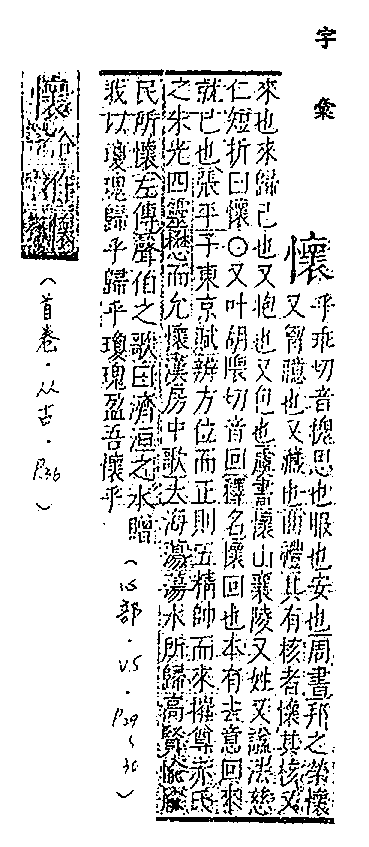 字彙
懷乎乖切音槐思也服也安也周書邦之榮懷
又胷臆也又藏也曲禮其有核者懷其核又
來也來歸己也又抱也又包也虞書懷山襄陵又姓又諡法慈
仁短折曰懷〇又叶胡隈切音回釋名懷回也本有去意回來
就已也張平子東京賦辨方位而正則五精帥而來摧尊赤氏
之朱光四靈懋而允懷漢房中歌大海蕩蕩水所歸高賢愉愉
民所懷左傳聲伯之歌曰濟洹之水贈
我以瓊瑰歸乎歸乎瓊瑰盈吾懷乎
(心部.V5.P29~30)
懷俗作
(首卷.从古.P.36)